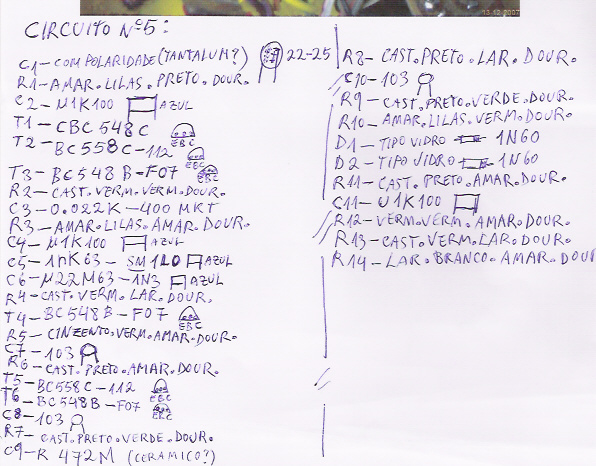 13.12.2007
CIRCUITO Nº5:
C1-COM POLARIDADE (TANTALUM?) 22-25
R1-AMAR.LILAS.PRETO.DOUR.
C2-µ1K100 AZUL
T1-CBC548C
T2-BC558C-112 EBC
T3-BC548B-F07 EBC
R2-CAST.VERM.VERM.DOUR.
C3-0.022K-400 MKT
R3-AMAR.LILAS.AMAR.DOUR.
C4-µ1K100 AZUL
C5-1NK63-SM1L0 AZUL
C6-µ22M63-1N3 AZUL
R4-CAST.VERM.LAR.DOUR.
T4-BC548B-F07 EBC
R5-CINZENTO.VERM.AMAR.DOUR.
C7-103
R6-CAST.PRETO.AMAR.DOUR.
T5-BC558C-112 EBC
T6-BC548B-F07 EBC
C8-103
R7-CAST.PRETO.VERDE.DOUR.
C9-R 472M (CERAMICO?)
R8-CAST.PRETO.LAR.DOUR.
C10-103
R9-CAST.PRETO.VERDE.DOUR.
R10-AMAR.LILAS.VERM.DOUR.
D1-TIPO VIDRO 1N60
D2-TIPO VIDRO 1N60
R11-CAST.PRETO.AMAR.DOUR.
C11-U1K100
R12-VERM.VERM.AMAR.DOUR.
R13-CAST.VERM.LAR.DOUR.
R14-LAR.BRANCO.AMAR.DOUR